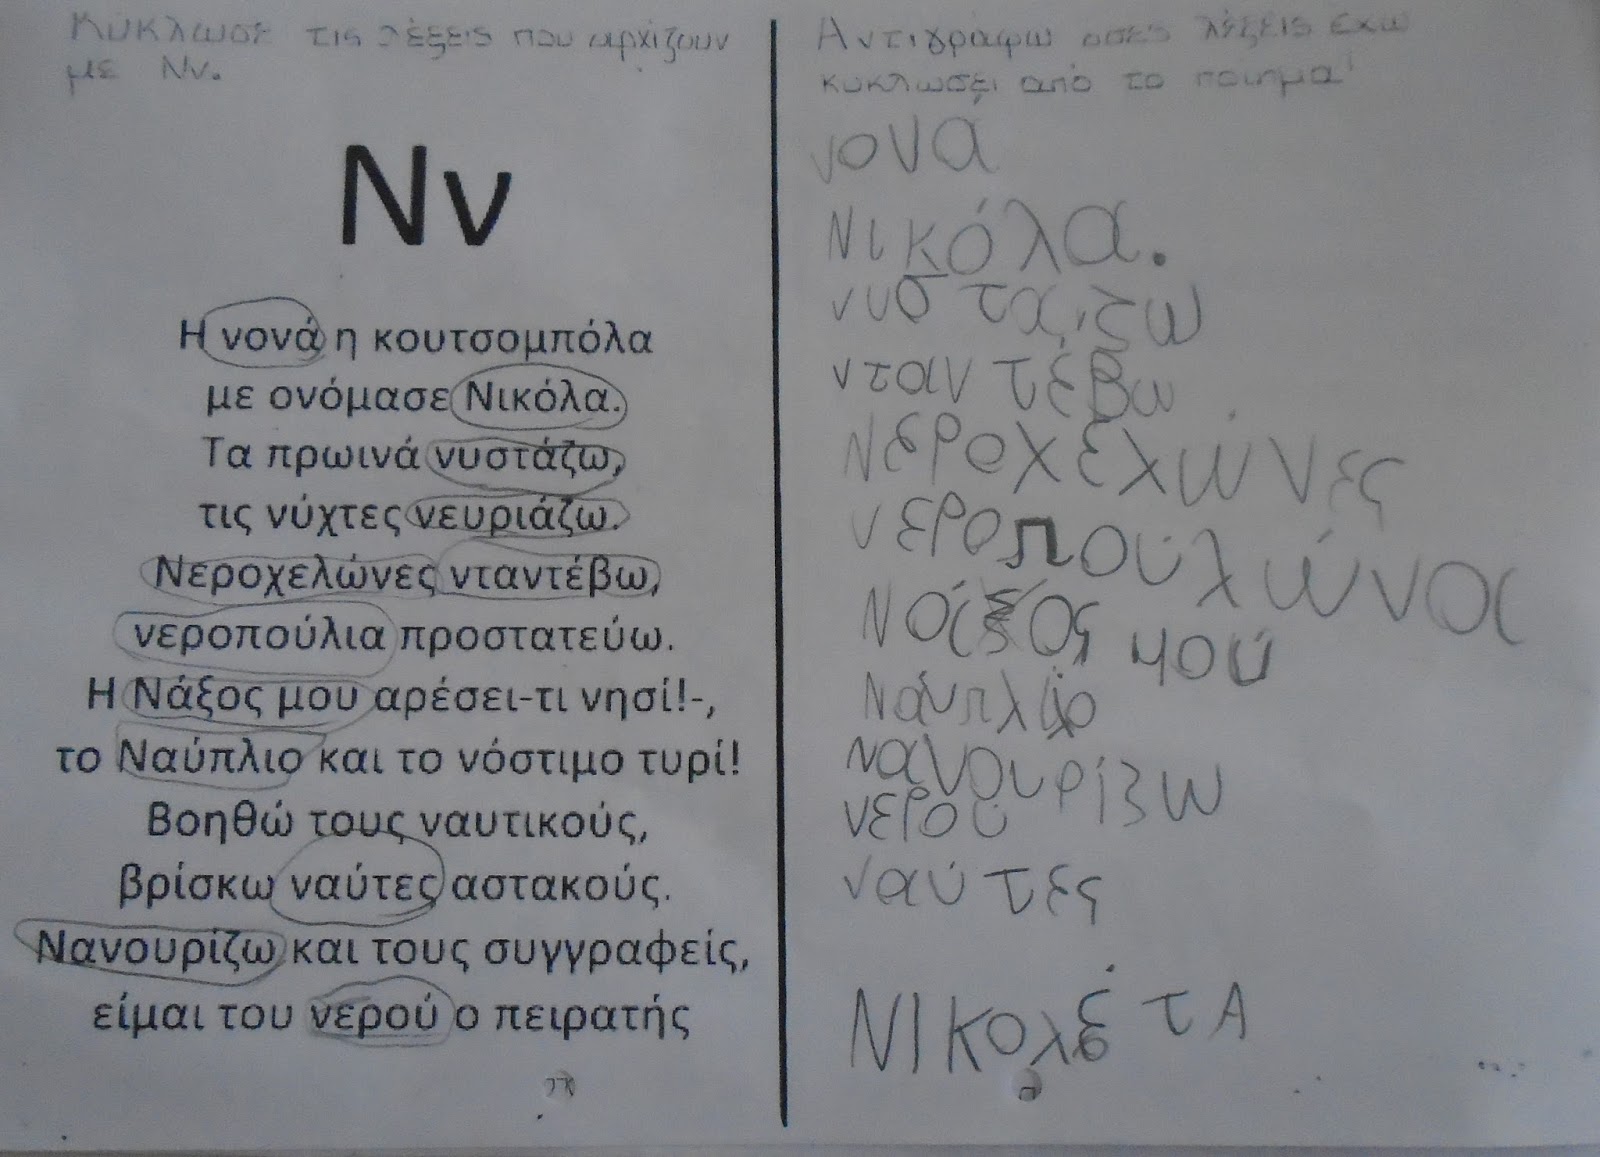 Κύκλωσε τις λέξεις που αρχίζουν
με Νν.
Νν
Η νονά η κουτσομπόλα
με ονόμασε Νικόλα.
Τα πρωινά νυστάζω,
τις νύχτες νευριάζω.
Νεροχελώνες νταντέβω,
νεροπούλια προστατεύω.
Η Νάξος μου αρέσει-τι νησί!-,
το Ναύπλιο και το νόστιμο τυρί!
Βοηθώ τους ναυτικούς,
βρίσκω ναύτες αστακούς.
Νανουρίζω και τους συγγραφείς,
είμαι του νερού ο πειρατής
Αντιγράφω όσες λέξεις έχω
κυκλώσει από το ποίημα
νονά
Νικόλα.
νυστάζω
νταντέβω
Νεροχελώνες
νεροπουλώνα
Νάξος μού
Ναύπλιο
νανουρίζω
νερού
ναύτες
ΝΙΚολέτΑ